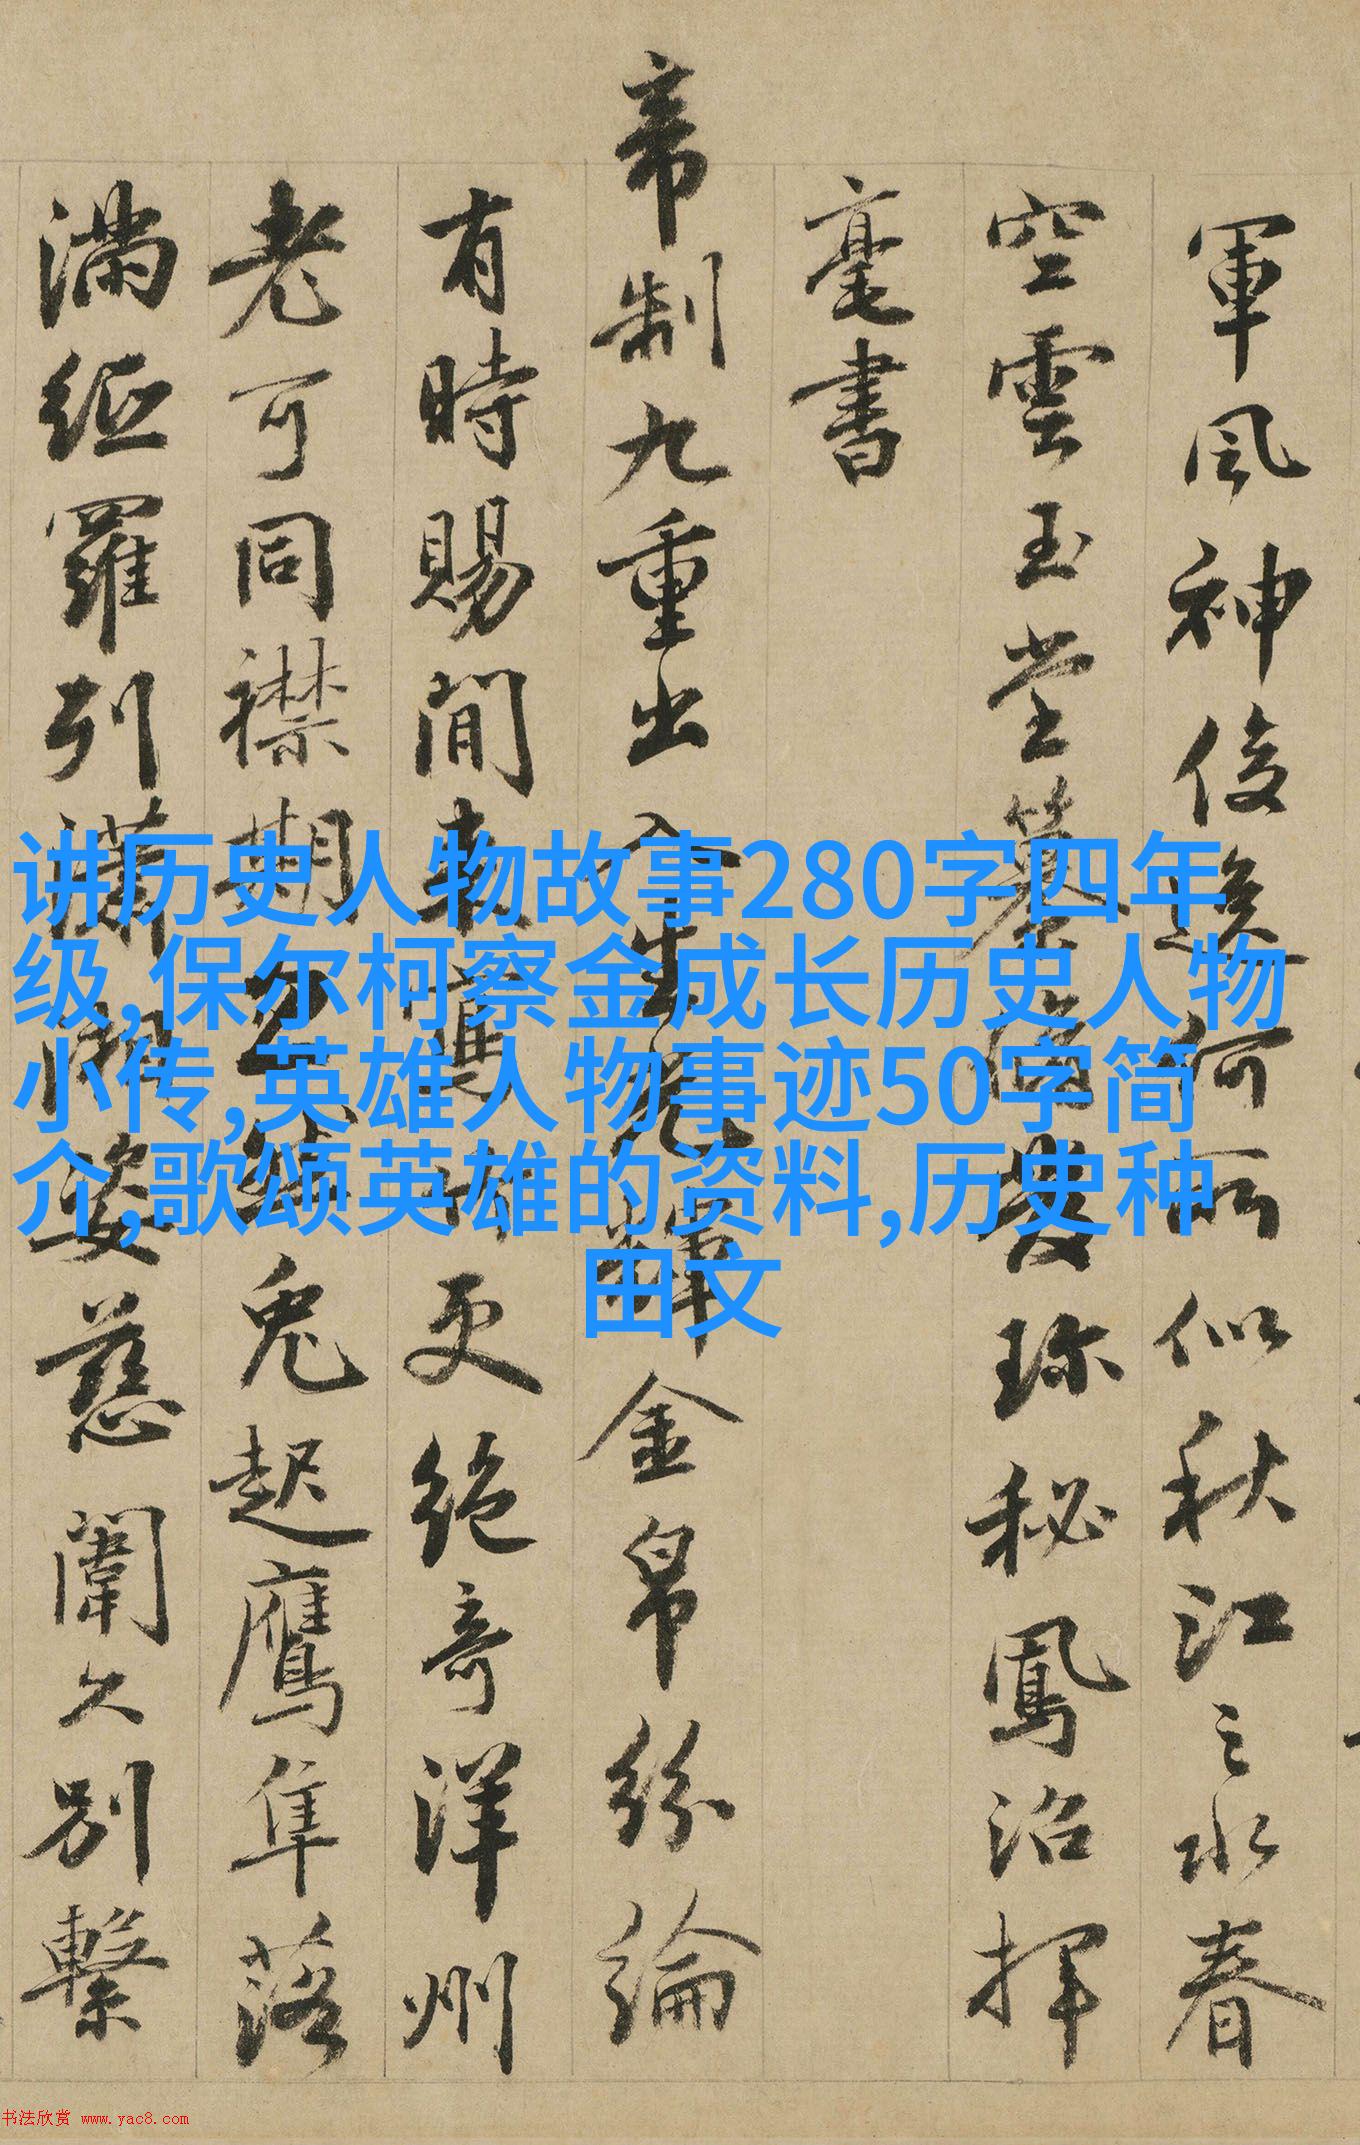 軍風神俊邁何所似秋江之水春
空雲玉堂
珎秘鳳沼揮
毫書
帝制九重出入生光輝金帛紛綸
有時賜閒
更絶奇洋州
老可同襟期
兔起鷹隼落
滿經羅列瀟湘姿慈闈久別繫
讲历史人物故事280字四年
级,保尔柯察金成长历史人物
小传,英雄人物事迹50字简
介,歌颂英雄的资料,历史种
田文
书法欣赏 www.yac8.com